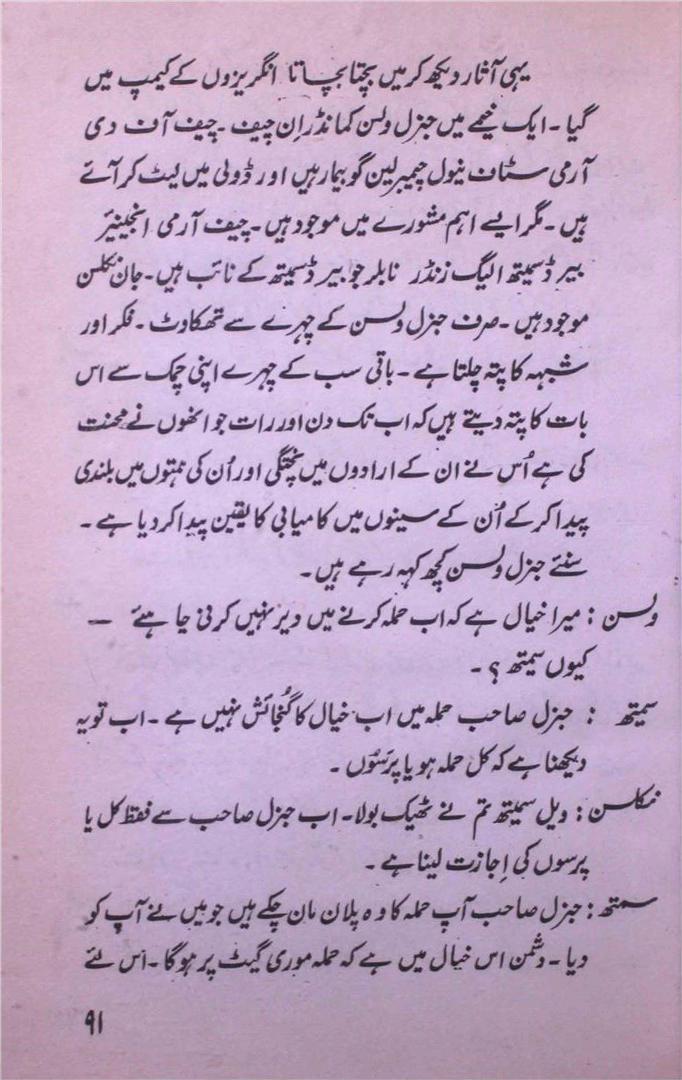 یہی آثار دیکھ کر میں بچتا بچاتا انگریزوں کے کیمپ میں
گیا ۔ ایک خیمے میں جنرل ولسن کمانڈر اِن چیف ۔ چیف آف دی
آرمی سٹاف نیول چیمبرلین گو بیمار ہیں اور ڈولی میں لیٹ کر آئے
ہیں ۔ مگر ایسے اہم مشورے میں موجود ہیں ۔ چیف آرمی انجینیئر
بیرڈ سمیتھ الیگ زنڈر ٹابلر جو بیرڈ سمیتھ کے نائب ہیں ۔ جان نکلسن
موجود ہیں ۔ صرف جنرل ولسن کے چہرے سے تھکاوٹ ۔ فکر اور
شبہہ کا پتہ چلتا ہے ۔ باقی سب کے چہرے اپنی چمک سے اس
بات کا پتہ دیتے ہیں کہ اب تک دن اور رات جو انھوں نے محنت
کی ہے اُس نے ان کے ارادوں میں پختگی اور اُن کی ہمتوں میں بلندی
پیدا کر کے اُن کے سینوں میں کامیابی کا یقین پیدا کر دیا ہے ۔
سنئے جنرل ولسن کچھ کہہ رہے ہیں ۔
ولسن : میرا خیال ہے کہ اب حملہ کرنے میں دیر نہیں کرنی چاہئے —
کیوں سمتھ ؟ ۔
سمیتھ : جنرل صاحب حملہ میں اب خیال کا گُنجائش نہیں ہے ۔ اب تو یہ
دیکھنا ہے کہ کل حملہ ہو یا پرَسُوں ۔
نکلسن : ویل سمیتھ تم نے ٹھیک بولا ۔ اب جنرل صاحب سے فقط کل یا
پرسوں کی اِجازت لینا ہے ۔
سمتھ : جنرل صاحب آپ حملہ کا وہ پلان مان چکے ہیں جو میں نے آپ کو
دیا ۔ دشمن اس خیال میں ہے کہ حملہ موری گیٹ پر ہو گا ۔ اس لئے
۹۱